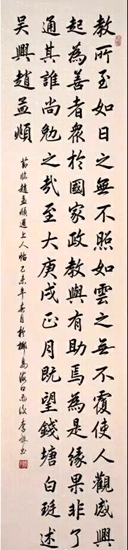 教所至如日之無不照如雲之無不覆使人觀感興
起為善者眾於國家政教與有助焉為是緣果非了
通其誰尚勉之哉至大庚戌正月既望錢塘白珽述
吳興趙孟頫
節臨趙孟頫道上人帖己未年春月於椰島海口 李 書